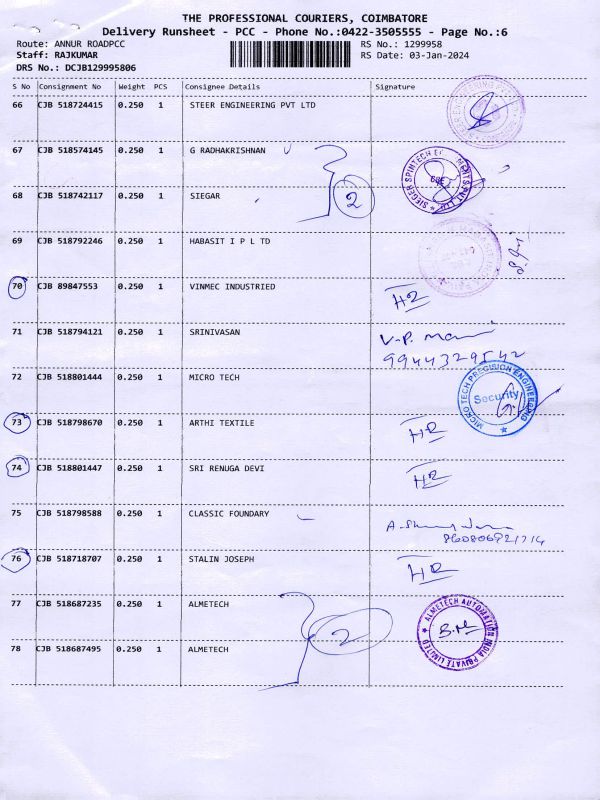 THE PROFESSIONAL COURIERS, COIMBATORE
Delivery Runsheet - PCC - Phone No.:0422-3505555 - Page No.:6
Route: ANNUR ROADPCC RS No.: 1299958
Staff: RAJKUMAR RS Date: 03-Jan-2024
DRS No.: DCJB129995806
S No Consignment No Weight PCS Consignee Details Signature
66 CJB 518724415 0.250 1 STEER ENGINEERING PVT LTD
67 CJB 518574145 0.250 1 G RADHAKRISHNAN
2
68 CJB 518742117 0.250 1 SIEGAR
69 CJB 518792246 0.250 1 HABASIT I P L TD
70 CJB 89847553 0.250 1 VINMEC INDUSTRIED
71 CJB 518794121 0.250 1 SRINIVASAN V.P.
9944329542
72 CJB 518801444 0.250 1 MICRO TECH
MICRO TECH PRECISION ENGINEERING
Security
73 CJB 518798670 0.250 1 ARTHI TEXTILE
74 CJB 518801447 0.250 1 SRI RENUGA DEVI
75 CJB 518798588 0.250 1 CLASSIC FOUNDARY
76 CJB 518718707 0.250 1 STALIN JOSEPH
77 CJB 518687235 0.250 1 ALMETECH
2
ALMETECH AUTOMATION INDIA PRIVATE LIMITED
78 CJB 518687495 0.250 1 ALMETECH